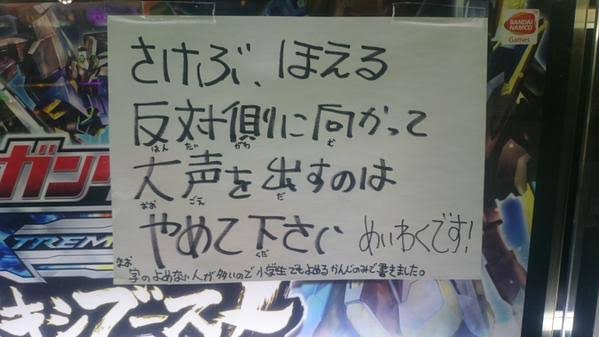 さけぶ、ほえる
反対側に向かって
はんたいがわ む
大声を出すのは
おおごえ だ
やめて下さい めいわくです!
くだ
なお
字のよめない人が多いので小学生でもよめるかんじのみで書きました。
BANDAI
NAMCO
Games
ガン
XTREME
キシブースト